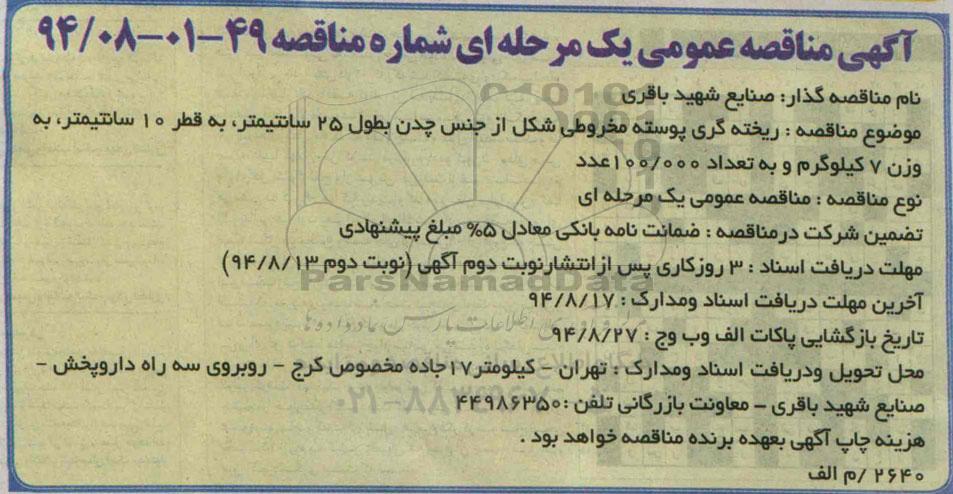 آگهی مناقصه عمومی یک مرحله ای شماره مناقصه ۴۹-۰۱-۹۴/۰۸
نام مناقصه گذار: صنایع شهید باقری
موضوع مناقصه : ریخته گری پوسته مخروطی شکل از جنس چدن بطول ۲۵ سانتیمتر، به قطر ۱۰ سانتیمتر، به
وزن ۷ کیلوگرم و به تعداد ۱۰۰/۰۰۰عدد
نوع مناقصه : مناقصه عمومی یک مرحله ای
تضمین شرکت درمناقصه : ضمانت نامه بانکی معادل ۵% مبلغ پیشنهادی
مهلت دریافت اسناد : ۳ روزکاری پس ازانتشارنوبت دوم آگهی (نوبت دوم ۹۴/۸/۱۳)
ParsNamadData
آخرین مهلت دریافت اسناد ومدارک : ۹۴/۸/۱۷
تاریخ بازگشایی پاکات الف وب وج : ۹۴/۸/۲۷
محل تحویل ودریافت اسناد ومدارک : تهران – کیلومتر۱۷جاده مخصوص کرج – روبروی سه راه داروپخش –
صنایع شهید باقری – معاونت بازرگانی تلفن :۴۴۹۸۶۳۵۰
هزینه چاپ آگهی بعهده برنده مناقصه خواهد بود .
۲۶۴۰ /م الف